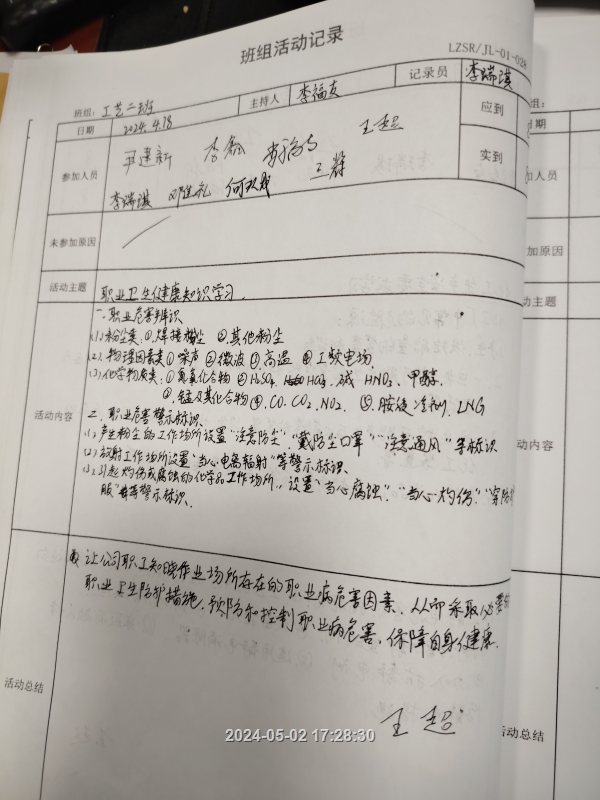 班组活动记录
LZSR/JL-01-028
班组: 工艺二班 主持人 李福友 记录员 李瑞琪
日期 2024.4.18 应到
参加人员 王超
李瑞琪 何双成 王辉 实到
未参加原因
活动主题 职业卫生健康知识学习.
活动内容 一.职业危害辨识
(1)粉尘类:①焊接烟尘 ②其他粉尘
(2)物理因素类①噪声②微波③高温④工频电场.
(3)化学物质类:①氮氧化合物②H₂SO₄ HCl、碱 HNO₃、甲醇.
③锰及其化合物④.CO.CO₂.NO₂. ⑤.胺液 冷剂, LNG
二.职业危害警示标识.
(1)产生粉尘的工作场所设置"注意防尘","戴防尘口罩""注意通风"等标识
(2)放射工作场所设置"当心电离辐射"等警示标识、
(3)引起灼伤或腐蚀的化学品工作场所,设置"当心腐蚀"."当心灼伤""穿防护
服"等警示标识.
让公司职工知晓作业场所存在的职业病危害因素.从而采取必要的
职业卫生防护措施.预防和控制职业病危害.保障自身健康.
活动总结
王超
2024-05-02 17:28:30
组:
期
加人员
加原因
动主题
动内容
活动总结